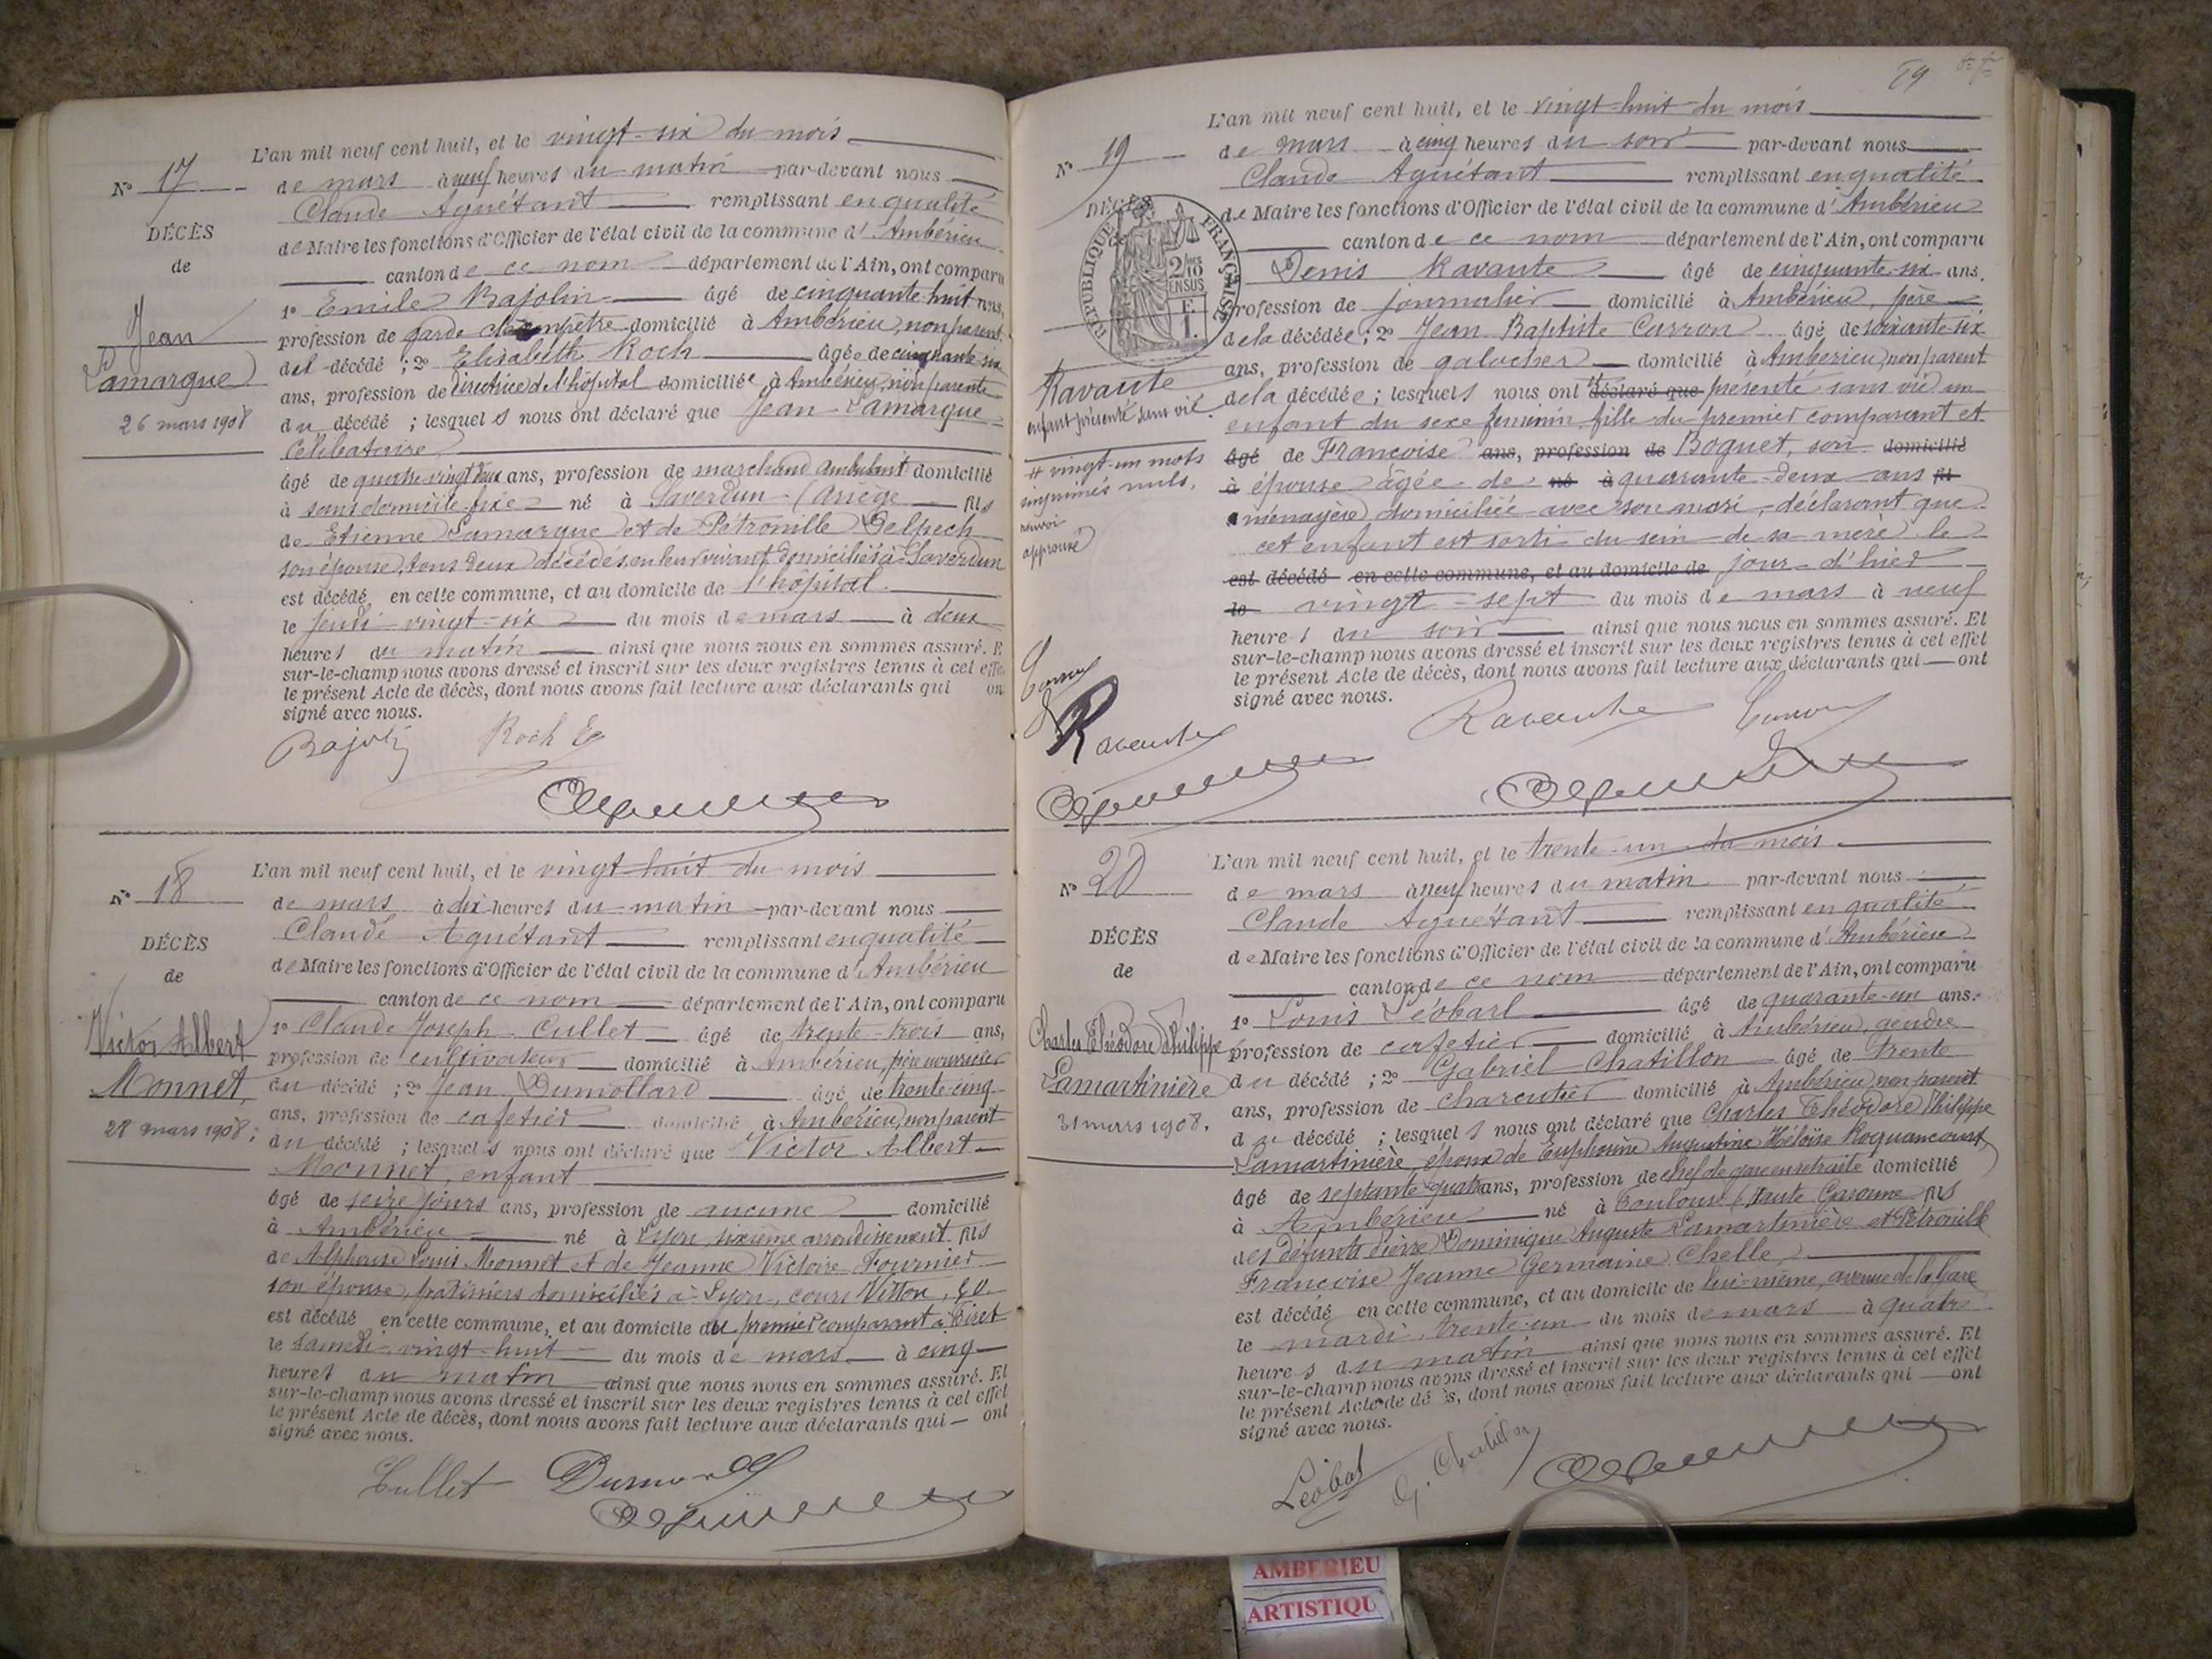 L'an mil neuf cent huit, et le vingt-six du mois
N° 17
de mars à neuf heures du matin par-devant nous
Claude Aguétant remplissant en qualité
DÉCÈS
de Maire les fonctions d'Officier de l'état civil de la commune d' Ambérieu
de
canton de ce nom département de l'Ain, ont comparu
1° Emile Bajolin âgé de cinquante-huit ans,
Jean
profession de garde champêtre domicilié à Ambérieu, non parent
Lamarque
del décédé ; 2° Elisabeth Roch âgée de cinquante-six
ans, profession de Directrice de l'hôpital domiciliée à Ambérieu, non parente
26 mars 1908
du décédé ; lesquels nous ont déclaré que Jean Lamarque
Célibataire
âgé de quatre-vingt deux ans, profession de marchand ambulant domicilié
à sans domicile fixe né à Saverdun (Ariège fils
de Etienne Lamarque et de Pétronille Delpech
son épouse, tous deux décédés, en leur vivant domiciliés à Saverdun
est décédé en cette commune, et au domicile de l'hôpital
le jeudi vingt-six du mois de mars à deux
heures du matin ainsi que nous nous en sommes assuré. E
sur-le-champ nous avons dressé et inscrit sur les deux registres tenus à cet effe
le présent Acte de décès, dont nous avons fait lecture aux déclarants qui on
signé avec nous.
Roch E
L'an mil neuf cent huit, et le vingt-huit du mois
N° 18
de mars à dix heures du matin par-devant nous
Claude Aguétant remplissant en qualité
DÉCÈS
de Maire les fonctions d'Officier de l'état civil de la commune d' Ambérieu
de
canton de ce nom département de l'Ain, ont comparu
Victor Albert
1° Claude Joseph Cullet âgé de trente-trois ans,
profession de cultivateur domicilié à Ambérieu, père nourricier
Monnet
du décédé ; 2° Jean Dumollard âgé de trente-cinq
28 mars 1908.
ans, profession de cafetier domicilié à Ambérieu, non parent
du décédé ; lesquels nous ont déclaré que Victor Albert
Monnet, enfant
âgé de seize jours ans, profession de aucune domicilié
à Ambérieu né à Lyon sixième arrondissement fils
de Alphonse Louis Monnet et de Jeanne Victoire Fournier
son épouse, domiciliés à Lyon, cours Vitton,
est décédé en cette commune, et au domicile du premier comparant à Tiret
le samedi vingt-huit du mois de mars à cinq
heures du matin ainsi que nous nous en sommes assuré. Et
sur-le-champ nous avons dressé et inscrit sur les deux registres tenus à cet effet
le présent Acte de décès, dont nous avons fait lecture aux déclarants qui ont
signé avec nous.
Cullet
69
L'an mil neuf cent huit, et le vingt-huit du mois
N° 19
de mars à cinq heures du soir par-devant nous
Claude Aguétant remplissant en qualité
DÉCÈS
de Maire les fonctions d'Officier de l'état civil de la commune d' Ambérieu
RÉPUBLIQUE FRANÇAISE
canton de ce nom département de l'Ain, ont comparu
Denis Ravante âgé de cinquante-six ans,
profession de journalier domicilié à Ambérieu, père
de la décédée ; 2° Jean Baptiste Carron âgé de soixante-six
ans, profession de galocher domicilié à Ambérieu, non parent
Ravante
enfant présenté sans vie
de la décédée ; lesquels nous ont déclaré que présenté sans vie un
enfant du sexe féminin fille du premier comparant et
# vingt-un mots
imprimés nuls.
renvoi
approuvé
âgé de Françoise ans, profession de Boguet, son domicilié
à épouse âgée de né à quarante-deux ans fil
ménagère domiciliée avec son mari, déclarant que
cet enfant est sorti du sein de sa mère le
est décédé en cette commune, et au domicile de jour d'hier
le vingt-sept du mois de mars à neuf
heures du soir ainsi que nous nous en sommes assuré. Et
sur-le-champ nous avons dressé et inscrit sur les deux registres tenus à cet effet
le présent Acte de décès, dont nous avons fait lecture aux déclarants qui ont
signé avec nous.
Ravante
Ravante
L'an mil neuf cent huit, et le trente-un du mois
N° 20
de mars à neuf heures du matin par-devant nous
Claude Aguétant remplissant en qualité
DÉCÈS
de Maire les fonctions d'Officier de l'état civil de la commune d' Ambérieu
de
canton de ce nom département de l'Ain, ont comparu
1° Louis Léobarl âgé de quarante-un ans.
Charles Théodore Philippe
profession de cafetier domicilié à Ambérieu, gendre
Lamartinière
du décédé ; 2° Gabriel Chatillon âgé de trente
31 mars 1908.
ans, profession de charcutier domicilié à Ambérieu, non parent
du décédé ; lesquels nous ont déclaré que Charles Théodore Philippe
Lamartinière, époux de Euphrosine Augustine Héloïse Roquancourt
âgé de septante-quatre ans, profession de chef de gare en retraite domicilié
à Ambérieu né à Toulouse (Haute Garonne fils
des défunts Pierre Dominique Auguste Lamartinière et Pétronille
Françoise Jeanne Germaine Chelle
est décédé en cette commune, et au domicile de lui-même, avenue de la Gare
le mardi trente-un du mois de mars à quatre
heures du matin ainsi que nous nous en sommes assuré. Et
sur-le-champ nous avons dressé et inscrit sur les deux registres tenus à cet effet
le présent Acte de dé s, dont nous avons fait lecture aux déclarants qui ont
signé avec nous.
G. Chatillon
AMBERIEU
ARTISTIQU